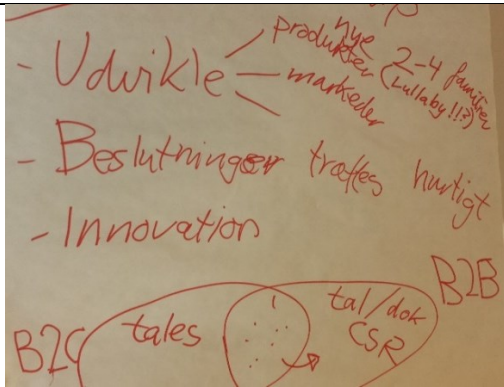 nye
- Udvikle
produkter
2-4 familier
(Lullaby!!?)
markeder
- Beslutninger træffes hurtigt
- Innovation
B2B
tal/dok
CSR
tales
B2C